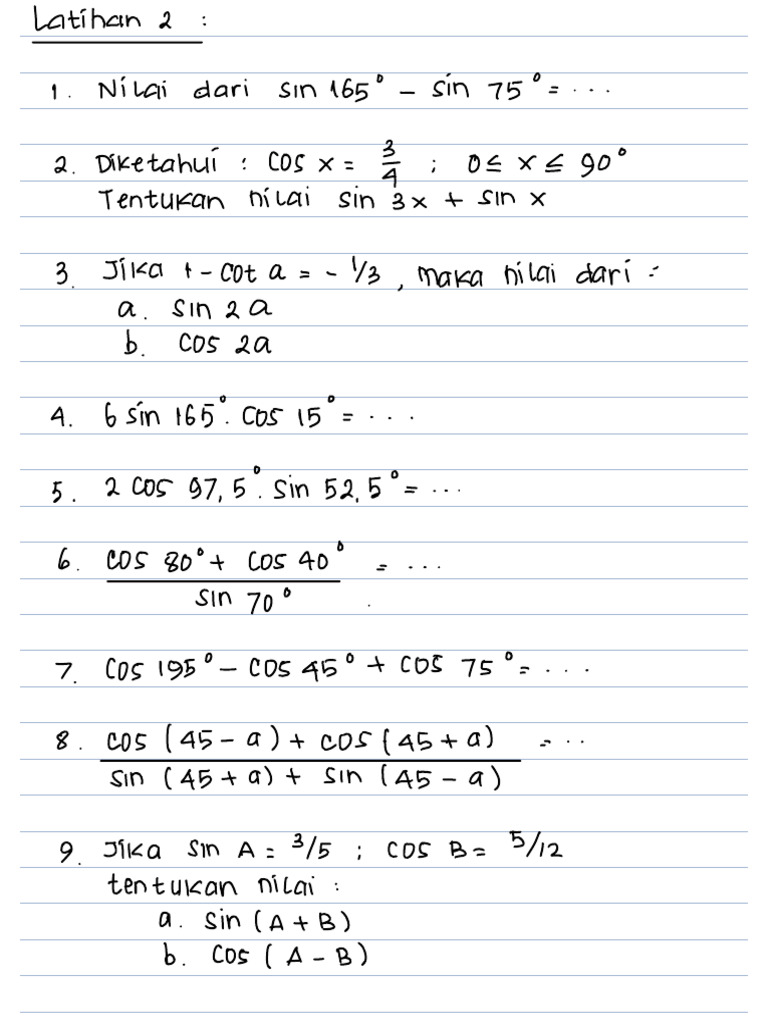 Latihan 2 :
1. Nilai dari sin 165° - sin 75° = ...
2. Diketahui : cos x = 3/4 ; 0 ≤ x ≤ 90°
Tentukan nilai sin 3x + sin x
3. Jika 1 - cot a = - 1/3 , maka nilai dari :
a. sin 2a
b. cos 2a
4. 6 sin 165° . cos 15° = ...
5. 2 cos 97,5° . sin 52,5° = ...
6. cos 80° + cos 40° = ...
sin 70°
7. cos 195° - cos 45° + cos 75° = ...
8. cos (45 - a) + cos (45 + a) = ..
sin (45 + a) + sin (45 - a)
9. Jika sin A = 3/5 ; cos B = 5/12
tentukan nilai :
a. sin (A + B)
b. cos (A - B)